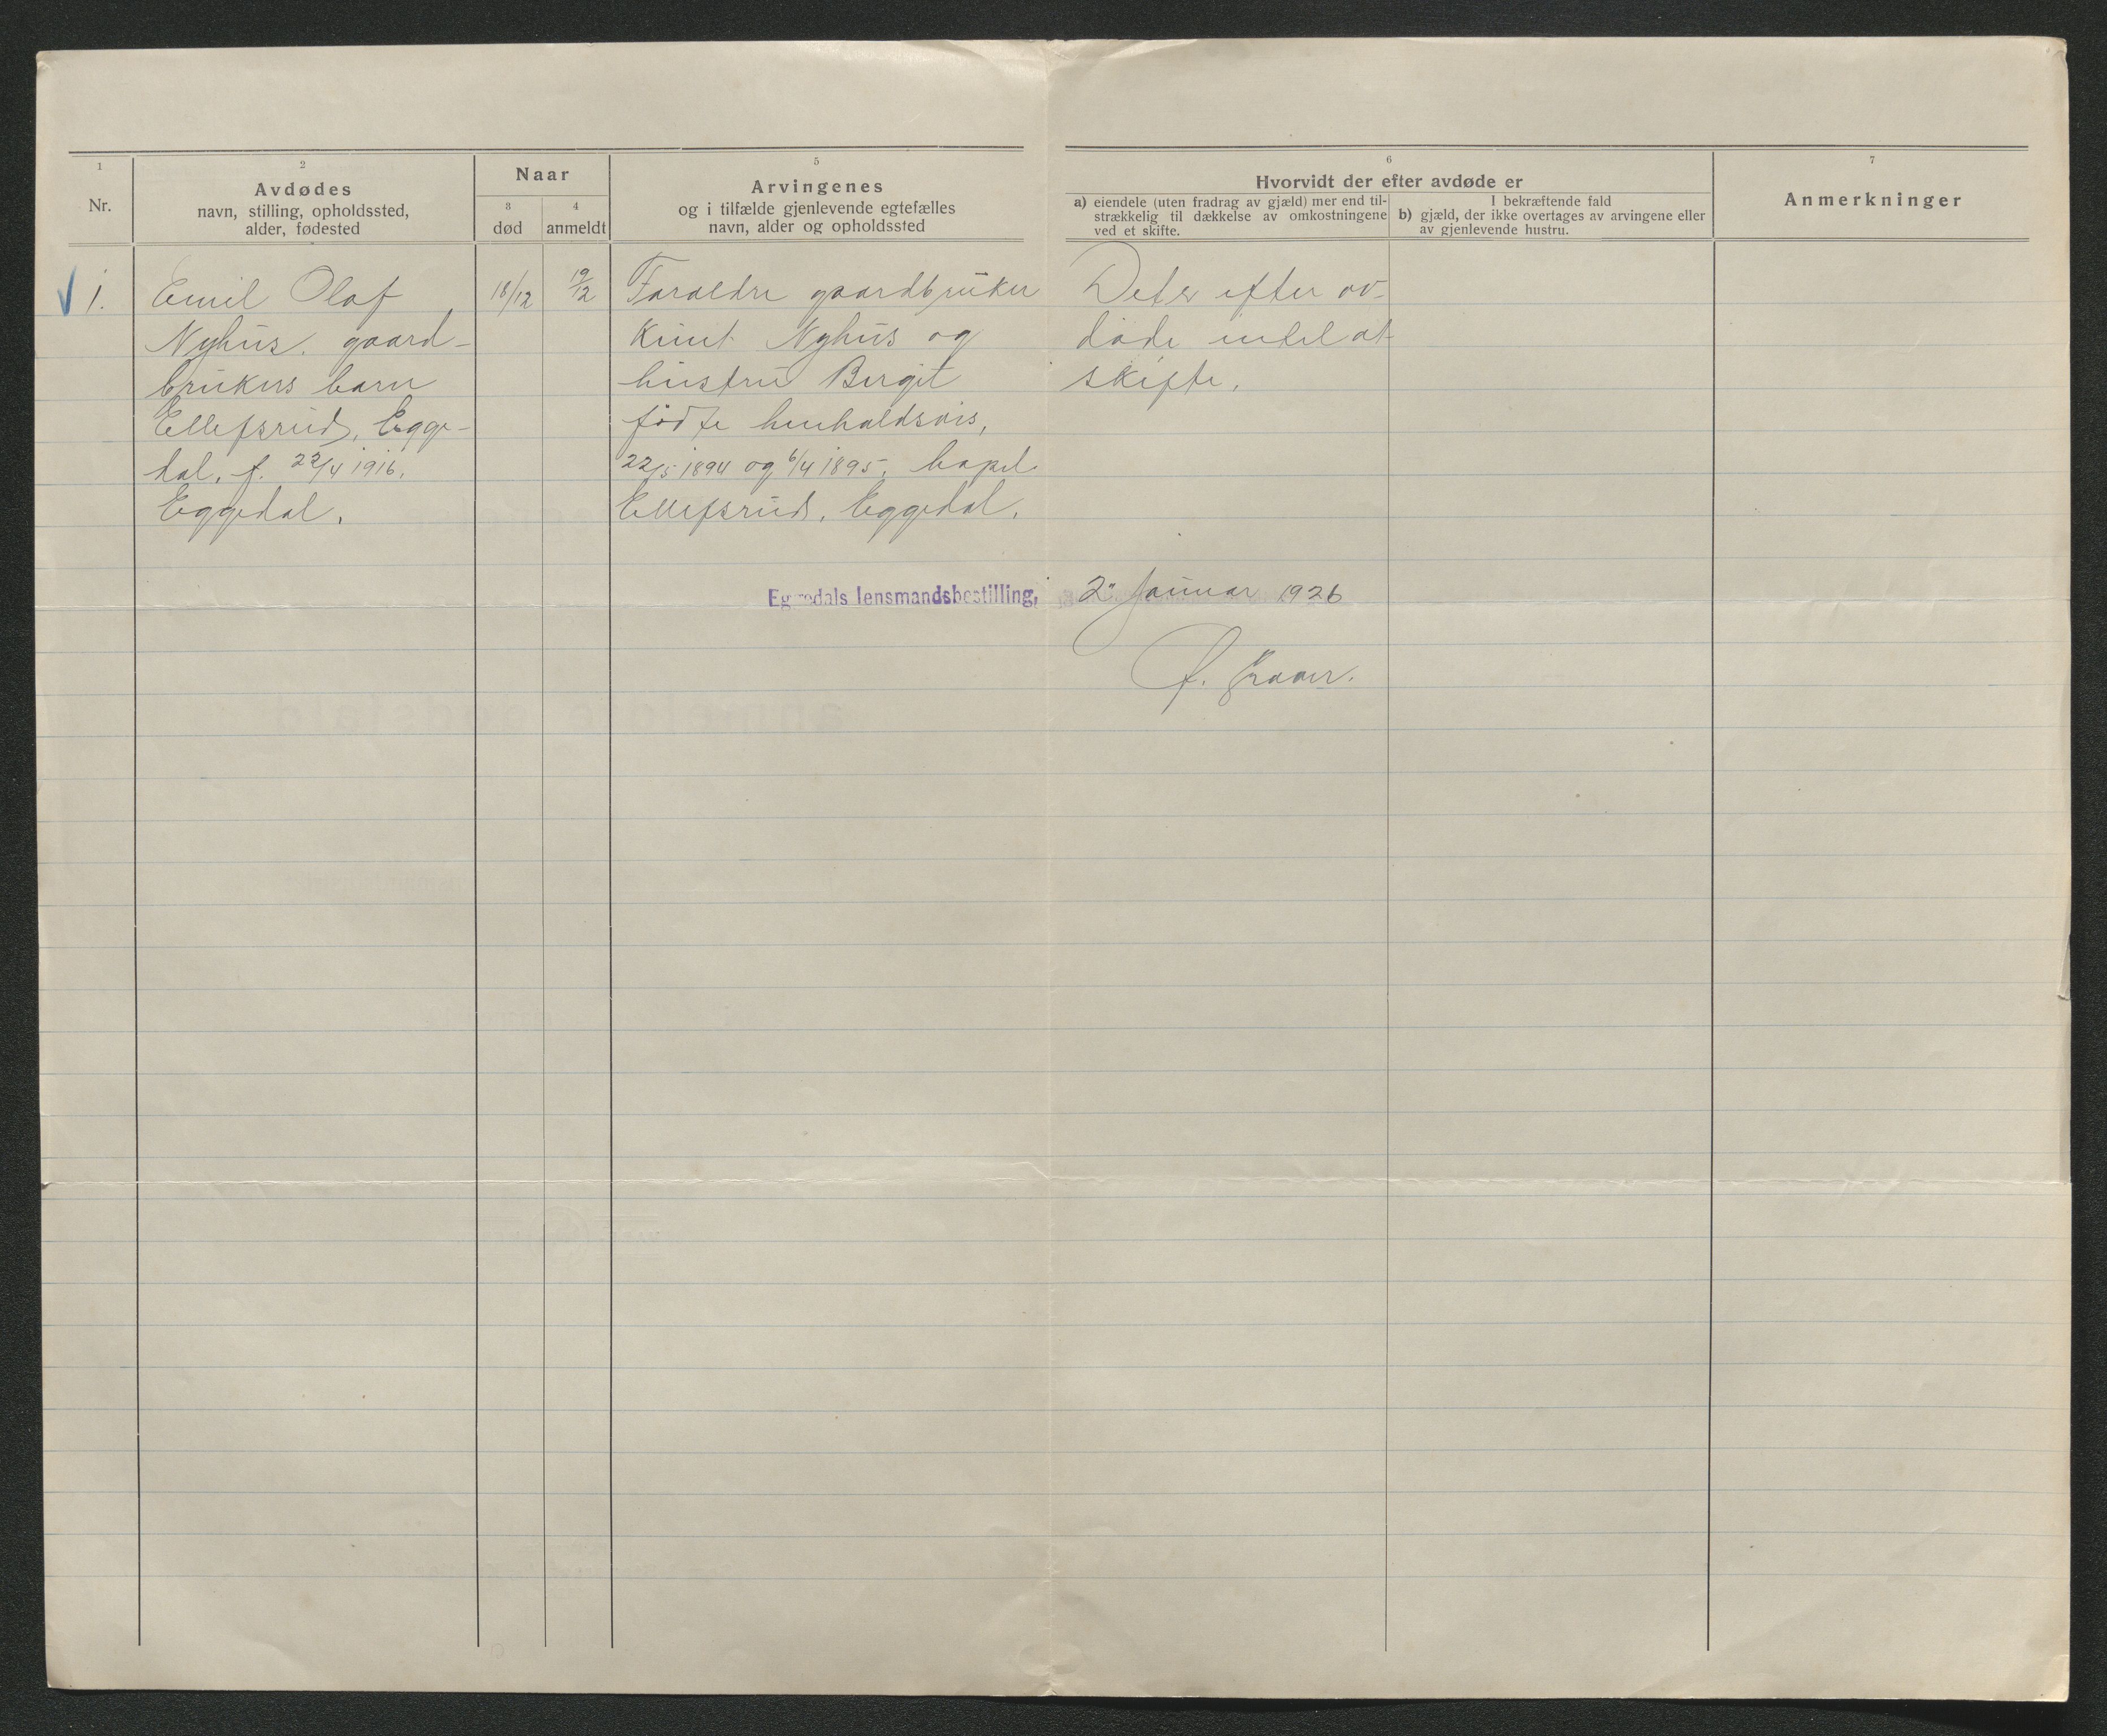 1
Nr.
2
Avdødes
navn, stilling, opholdssted,
alder, fødested
Naar
3
død
4
anmeldt
5
Arvingenes
og i tilfælde gjenlevende egtefælles
navn, alder og opholdssted
6
Hvorvidt der efter avdøde er
a) eiendele (uten fradrag av gjæld) mer end til-
strækkelig til dækkelse av omkostningene
ved et skifte.
I bekræftende fald
b) gjæld, der ikke overtages av arvingene eller
av gjenlevende hustru.
7
Anmerkninger
1.
Emil Olaf
Nyhus, gaard-
brukers barn
Ellefsrud, Egge-
dal, f. 22/4 1916.
Eggedal.
18/12
19/12
Foraeldre gaardbruker
Knut Nyhus og
hustru Bergit
fødte henholdsvis,
22/5 1894 og 6/4 1895, bopel
Ellefsrud, Eggedal.
Det er efter av-
døde intet at
skifte.
Eggedals lensmandsbestilling, 2 Januar 1926